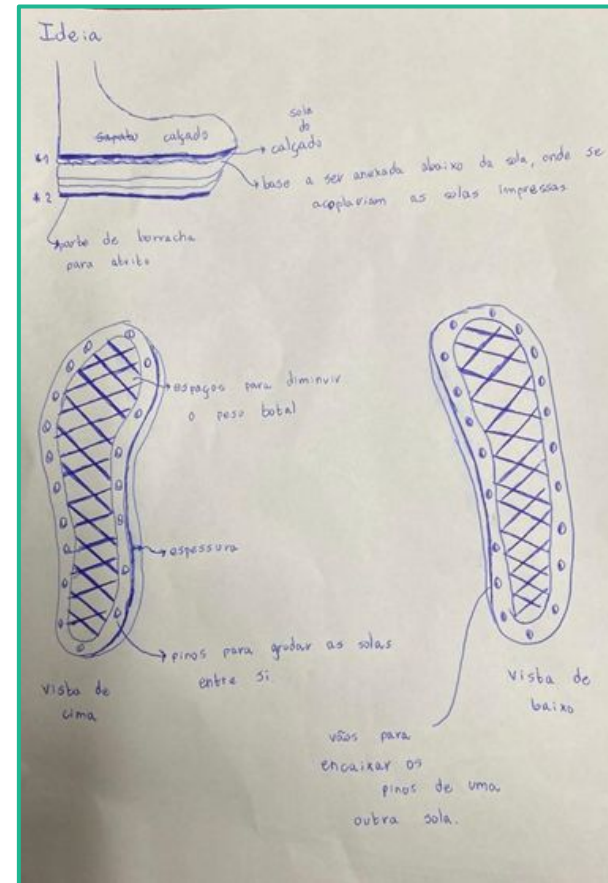 Ideia
sapato calçado
sola
do
calçado
*1
base a ser anexada abaixo da sola, onde se
acoplariam as solas impressas
*2
parte de borracha
para atrito
espaços para diminuir
o peso total
espessura
pinos para grudar as solas
entre si
vista de
cima
vista de
baixo
vãos para
encaixar os
pinos de uma
outra sola.